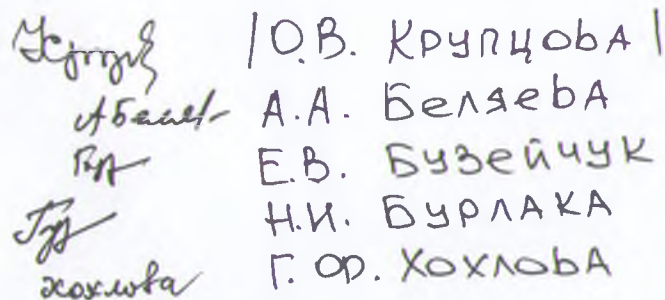 /О.В. Крупцова/
А.А. Беляева
Е.В. Бузейчук
Н.И. Бурлака
хохлова Г. Ф. Хохлова